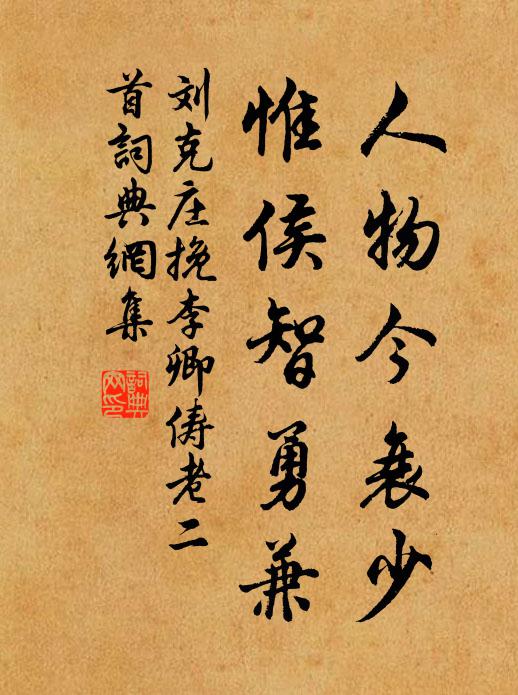 人物今衰少
惟侯智勇兼
刘克庄挽李卿俦老二
首詞典網集
詞典
网印